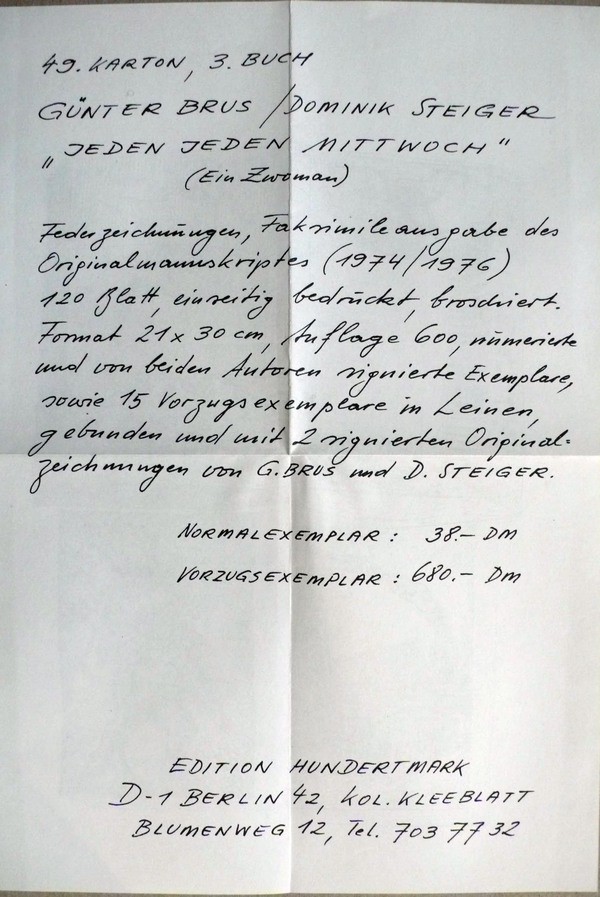 49. KARTON, 3. BUCH
GÜNTER BRUS / DOMINIK STEIGER
„JEDEN JEDEN MITTWOCH"
(Ein Zwoman)
Federzeichnungen, Faksimileausgabe des
Originalmanuskriptes (1974/1976)
120 Blatt, einseitig bedruckt, broschiert.
Format 21 x 30 cm, Auflage 600, numerierte
und von beiden Autoren signierte Exemplare,
sowie 15 Vorzugsexemplare in Leinen,
gebunden und mit 2 signierten Original=
zeichnungen von G. BRUS und D. STEIGER.
NORMALEXEMPLAR: 38.– DM
VORZUGSEXEMPLAR: 680.– DM
EDITION HUNDERTMARK
D-1 BERLIN 42, KOL. KLEEBLATT
BLUMENWEG 12, Tel. 703 77 32